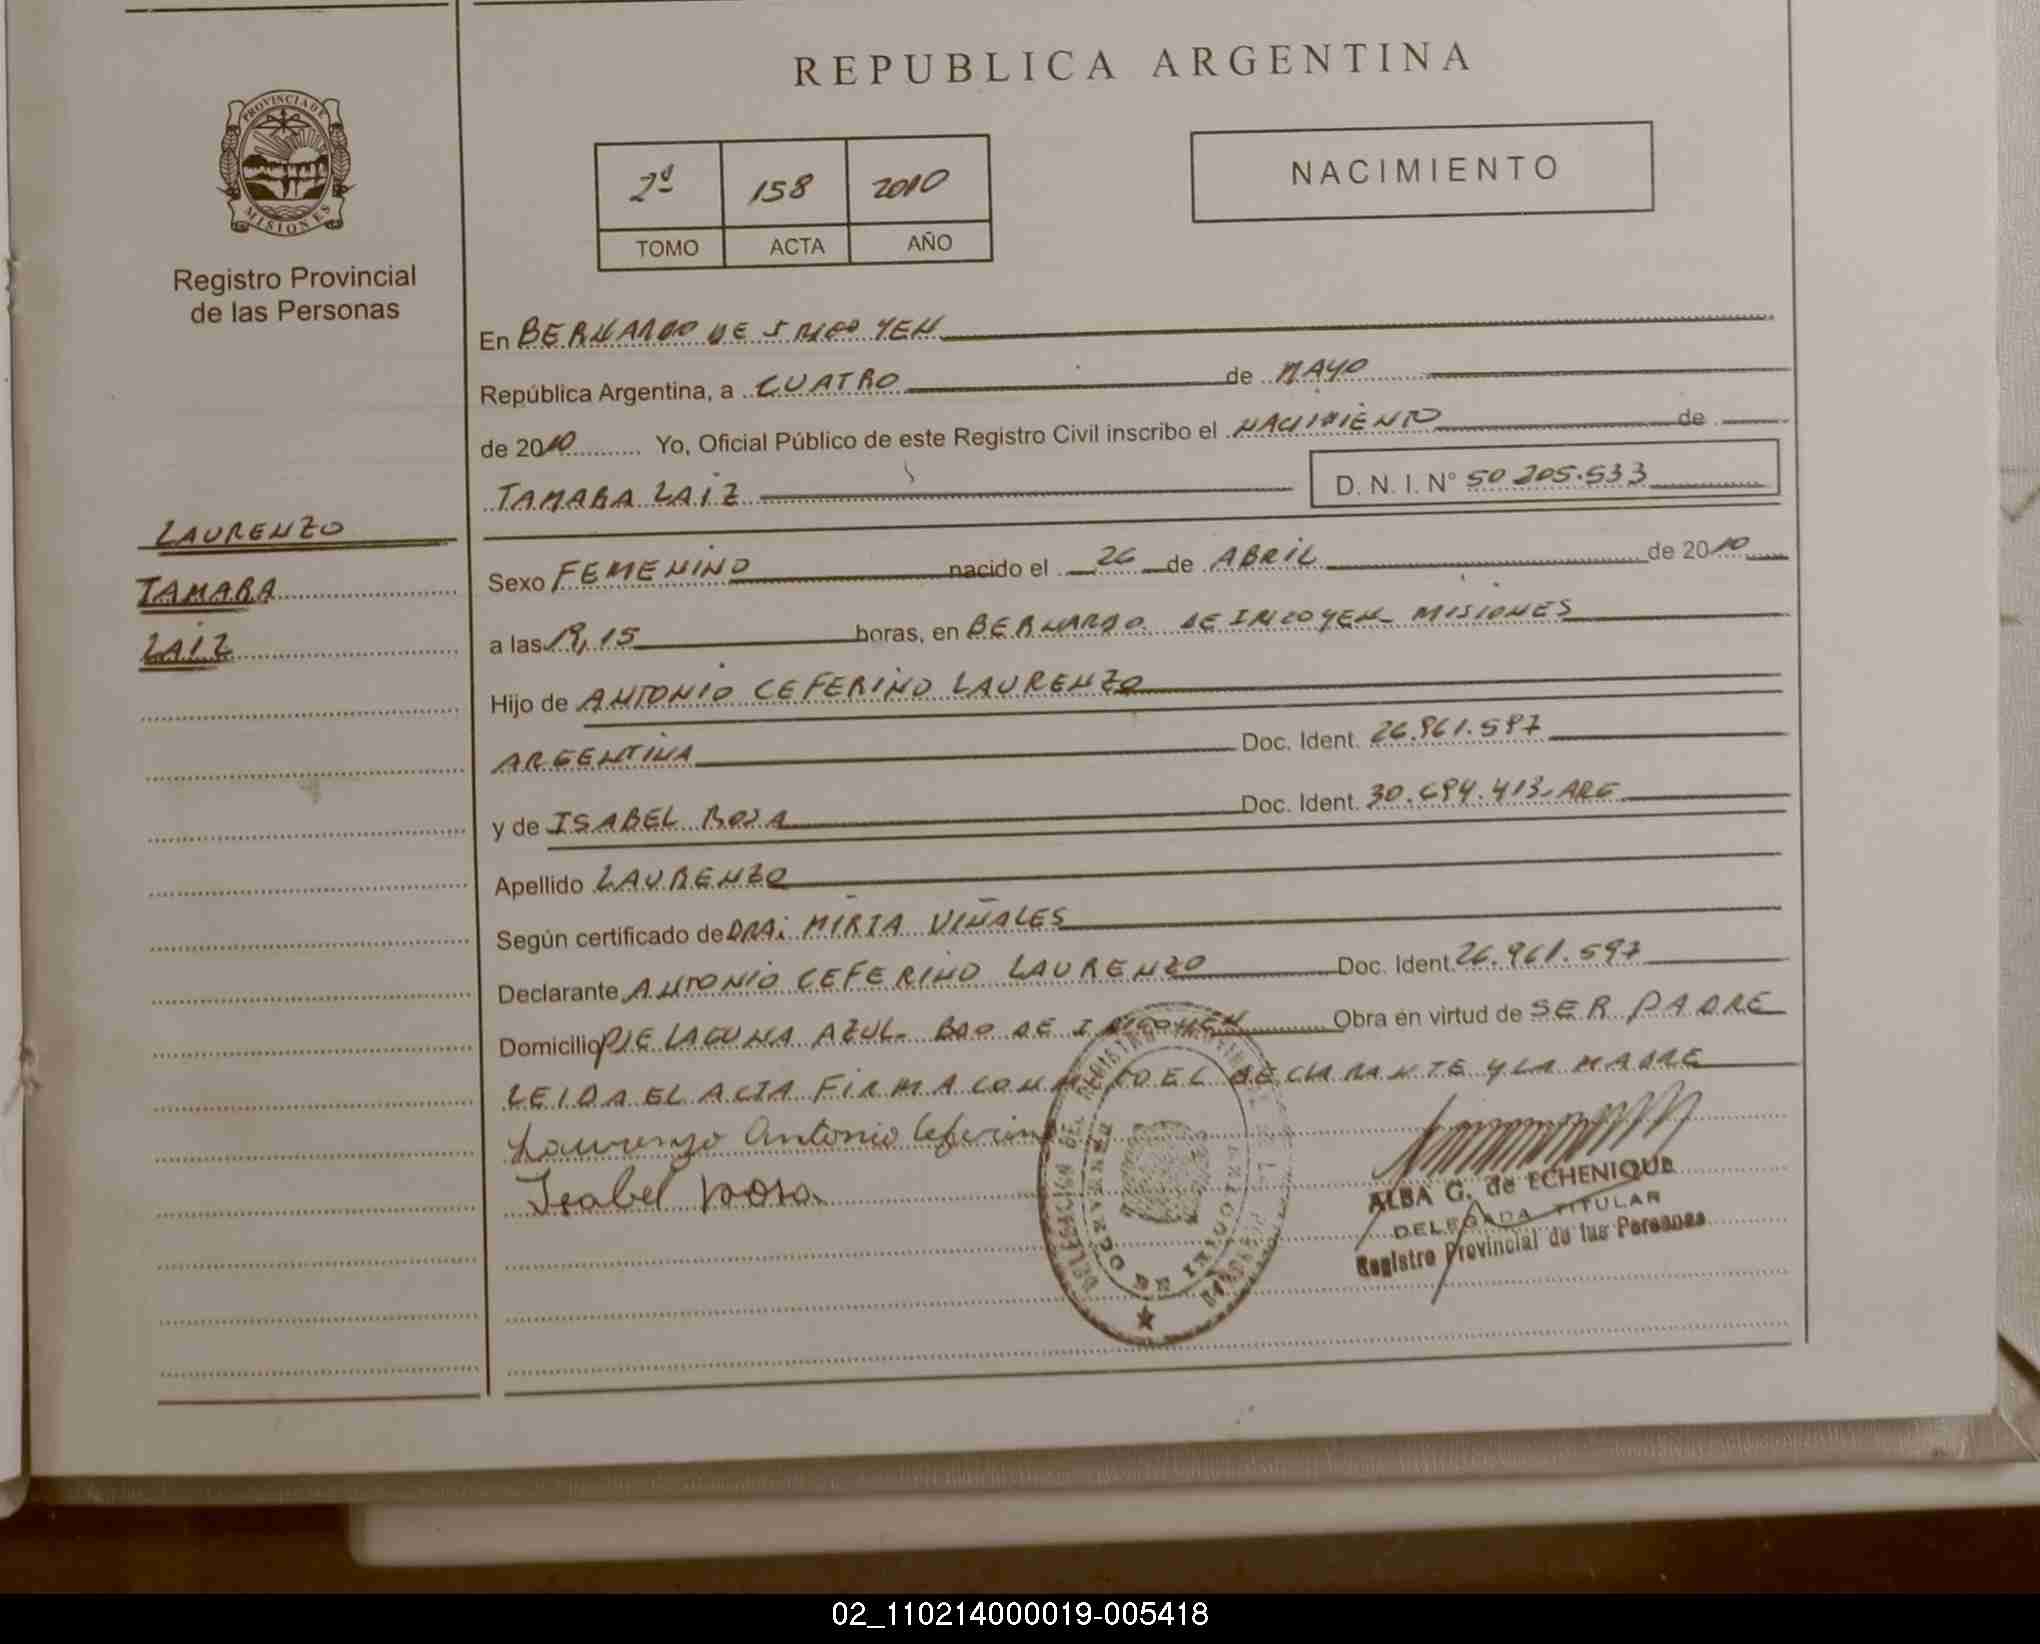 REPUBLICA ARGENTINA
PROVINCIA DE
MISIONES
Registro Provincial
de las Personas
2º 158 2010
TOMO ACTA AÑO
NACIMIENTO
En BERNARDO DE IRIGOYEN
República Argentina, a CUATRO de MAYO
de 2010 Yo, Oficial Público de este Registro Civil inscribo el NACIMIENTO de
TAMARA LAIZ D. N. I. Nº 50 205.533
LAURENZO
TAMARA
LAIZ
Sexo FEMENINO nacido el 26 de ABRIL de 2010
a las 19,15 horas, en BERNARDO DE IRIGOYEN MISIONES
Hijo de ANTONIO CEFERINO LAURENZO
ARGENTINA Doc. Ident. 26.961.597
y de ISABEL ROSA Doc. Ident. 30.694.413-ARG
Apellido LAURENZO
Según certificado de DRA: MIRIA VIÑALES
Declarante ANTONIO CEFERINO LAURENZO Doc. Ident. 26.961.597
Domicilio PJE LAGUNA AZUL- BDO DE IRIGOYEN Obra en virtud de SER PADRE
LEIDA EL ACTA FIRMA CONMIGO EL DECLARANTE Y LA MADRE
Laurenzo Antonio Ceferino
Isabel Rosa
ALBA G. de ECHENIQUE
DELEGADA TITULAR
Registro Provincial de las Personas
02_110214000019-005418